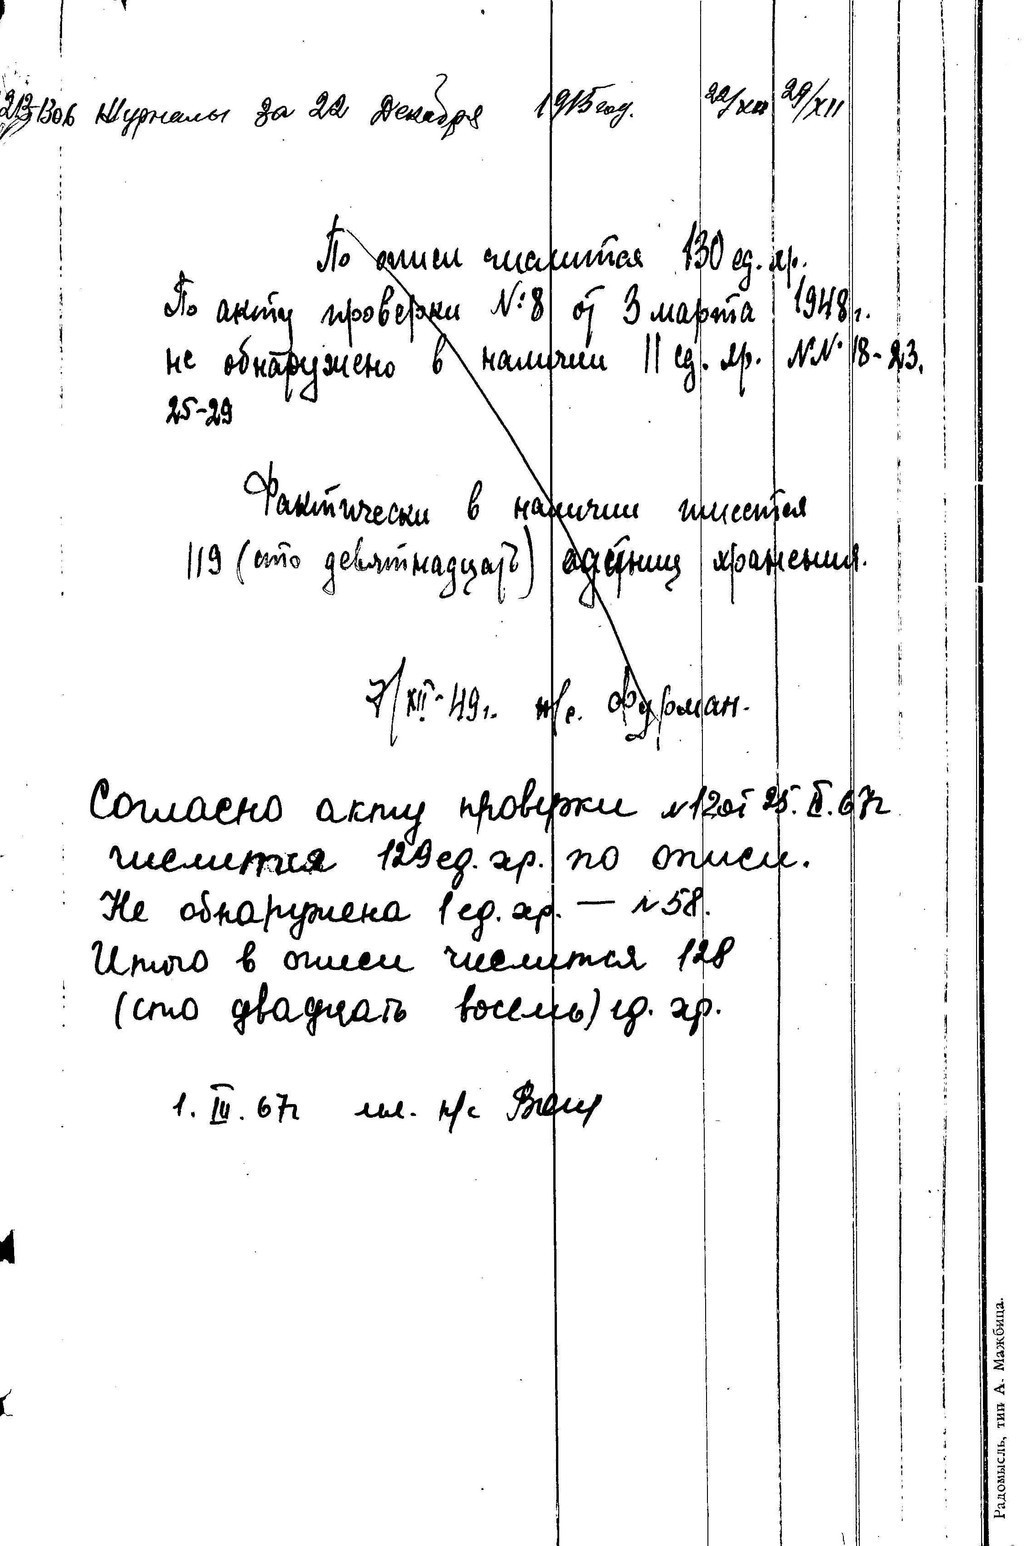 Журналы за 22 Декабря 1915 год. 22/XII 29/XII
По описи числится 130 ед. хр.
По акту проверки №8 от 3 марта 1948 г.
не обнаружено в наличии 11 ед. хр. NN 18-23.
25-29
Фактически в наличии имеется
119 (сто девятнадцать) единиц хранения.
7/XII-49 г. н/с. Фурман.
Согласно акту проверки №12 от 25. II. 67г
числится 129 ед. хр. по описи.
Не обнаружена 1 ед. хр. — №58.
Итого в описи числится 128
(сто двадцать восемь) ед. хр.
1. III. 67г мл. н/с
Радомысль, тип А. Мажбица.